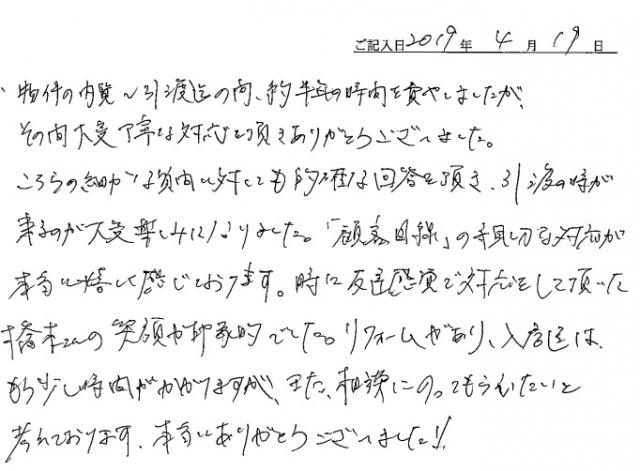 ご記入日 2019 年 4 月 19 日
物件の内覧〜引渡迄の間、約半年の時間を費やしましたが、
その間大変丁寧な対応を頂きありがとうございました。
こちらの細かな質問に対しても的確な回答を頂き、引渡の時が
来るのが大変楽しみになりました。「顧客目線」の親切な対応が
本当に嬉しく感じております。時に反応よく笑顔で対応をして頂いた
橋本さんの笑顔が印象的でした。リフォームがあり、入居迄は、
もう少し時間がかかりますが、また、相談にのってもらいたいと
考えております。本当にありがとうございました!!